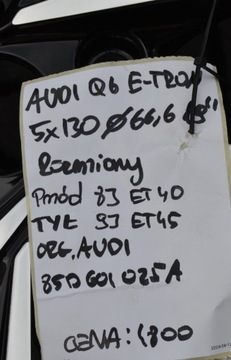 AUDI Q6 E-TRON
5x130 Ø66,6
Rozmiary
Przód 8J ET40
TYŁ 9J ET45
ORG. AUDI
85D601025A
CENA: 1800